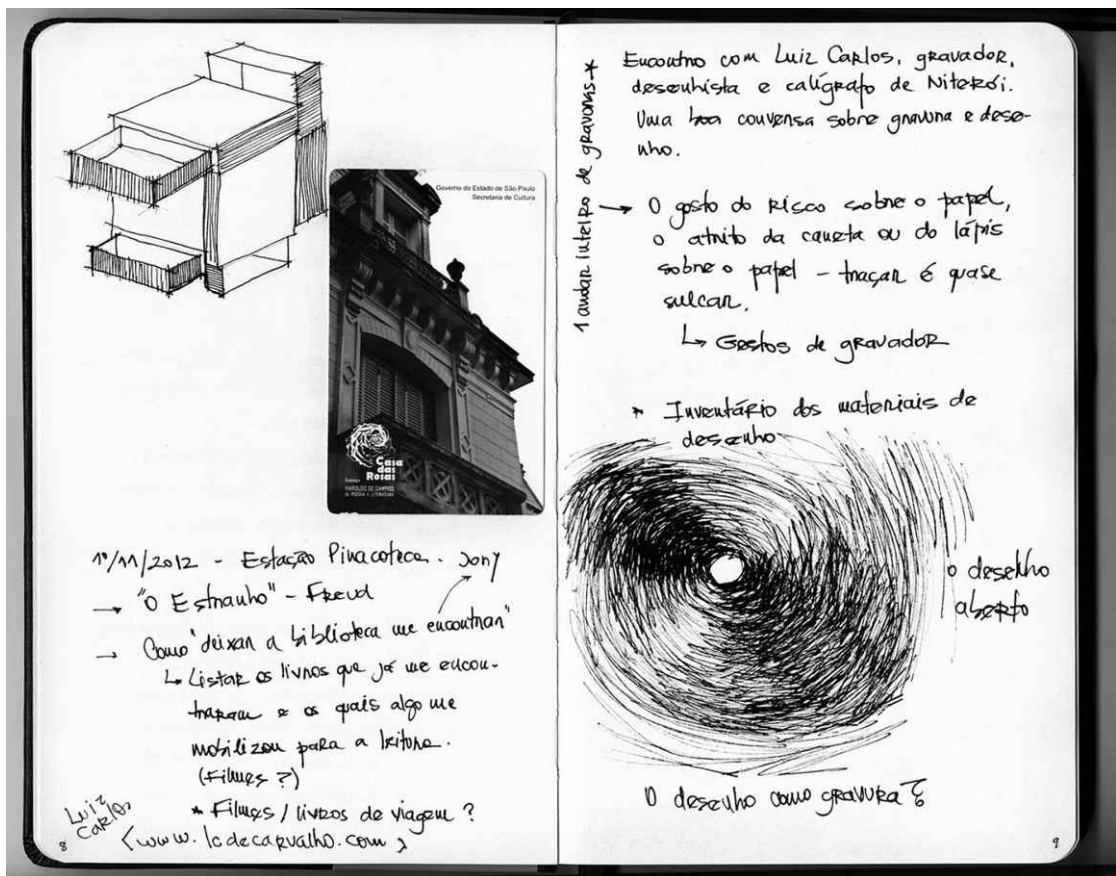 Governo do Estado de São Paulo
Secretaria de Cultura
Casa
das
Rosas
Espaço
HAROLDO DE CAMPOS
de POESIA e LITERATURA
1º/11/2012 - Estação Pinacoteca. Jony
→ "O Estranho" - Freud
→ Como "deixar a biblioteca me encontrar"
↳ Listar os livros que já me encon-
traram e os quais algo me
mobilizou para a leitura.
(Filmes ?)
* Filmes / livros de viagem ?
Luiz
Carlos
<www.lcdecarvalho.com>
8
1 andar inteiro de gravuras *
Encontro com Luiz Carlos, gravador,
desenhista e calígrafo de Niterói.
Uma boa conversa sobre gravura e dese-
nho.
→ O gosto do risco sobre o papel,
o atrito da caneta ou do lápis
sobre o papel - traçar é quase
sulcar.
↳ Gestos de gravador
* Inventário dos materiais de
desenho
o desenho
aberto
O desenho como gravura
9